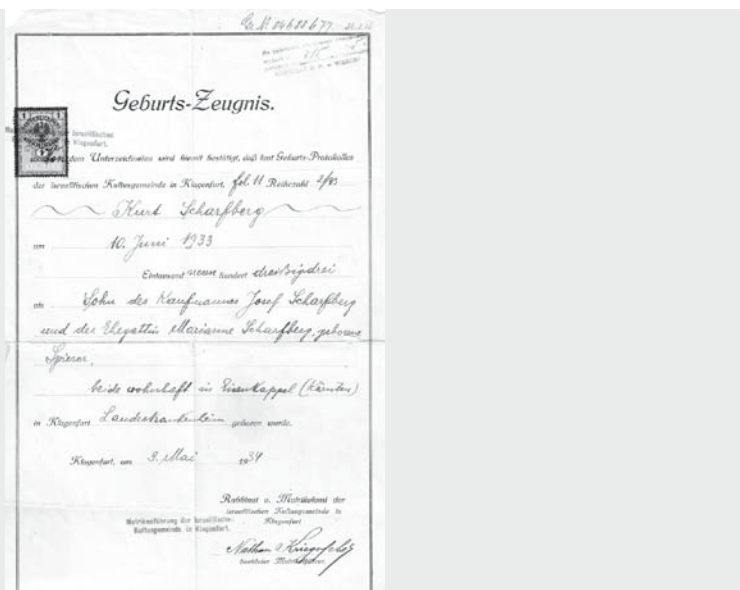 Geburts-Zeugnis.
dem Unterzeichneten wird hiemit bestätigt, daß laut Geburts-Protokolles
der israelitischen Kultusgemeinde in Klagenfurt, fol 11 Reihezahl 2/83
Kurt Scharfberg
am 10. Juni 1933
Eintausend neun hundert dreißigdrei
als Sohn des Kaufmannes Josef Scharfberg
und der Ehegattin Marianne Scharfberg, geborene
Spierer,
beide wohnhaft in Eisenkappel (Kärnten)
in Klagenfurt Landeskrankenheim geboren wurde.
Klagenfurt, am 9. Mai 1934
Rabbinat u. Matrikelamt der
israelitischen Kultusgemeinde in
Klagenfurt
Matrikenführung der Israelitischen
Kultusgemeinde in Klagenfurt.
Nathan
beeideter Matrikelführer.